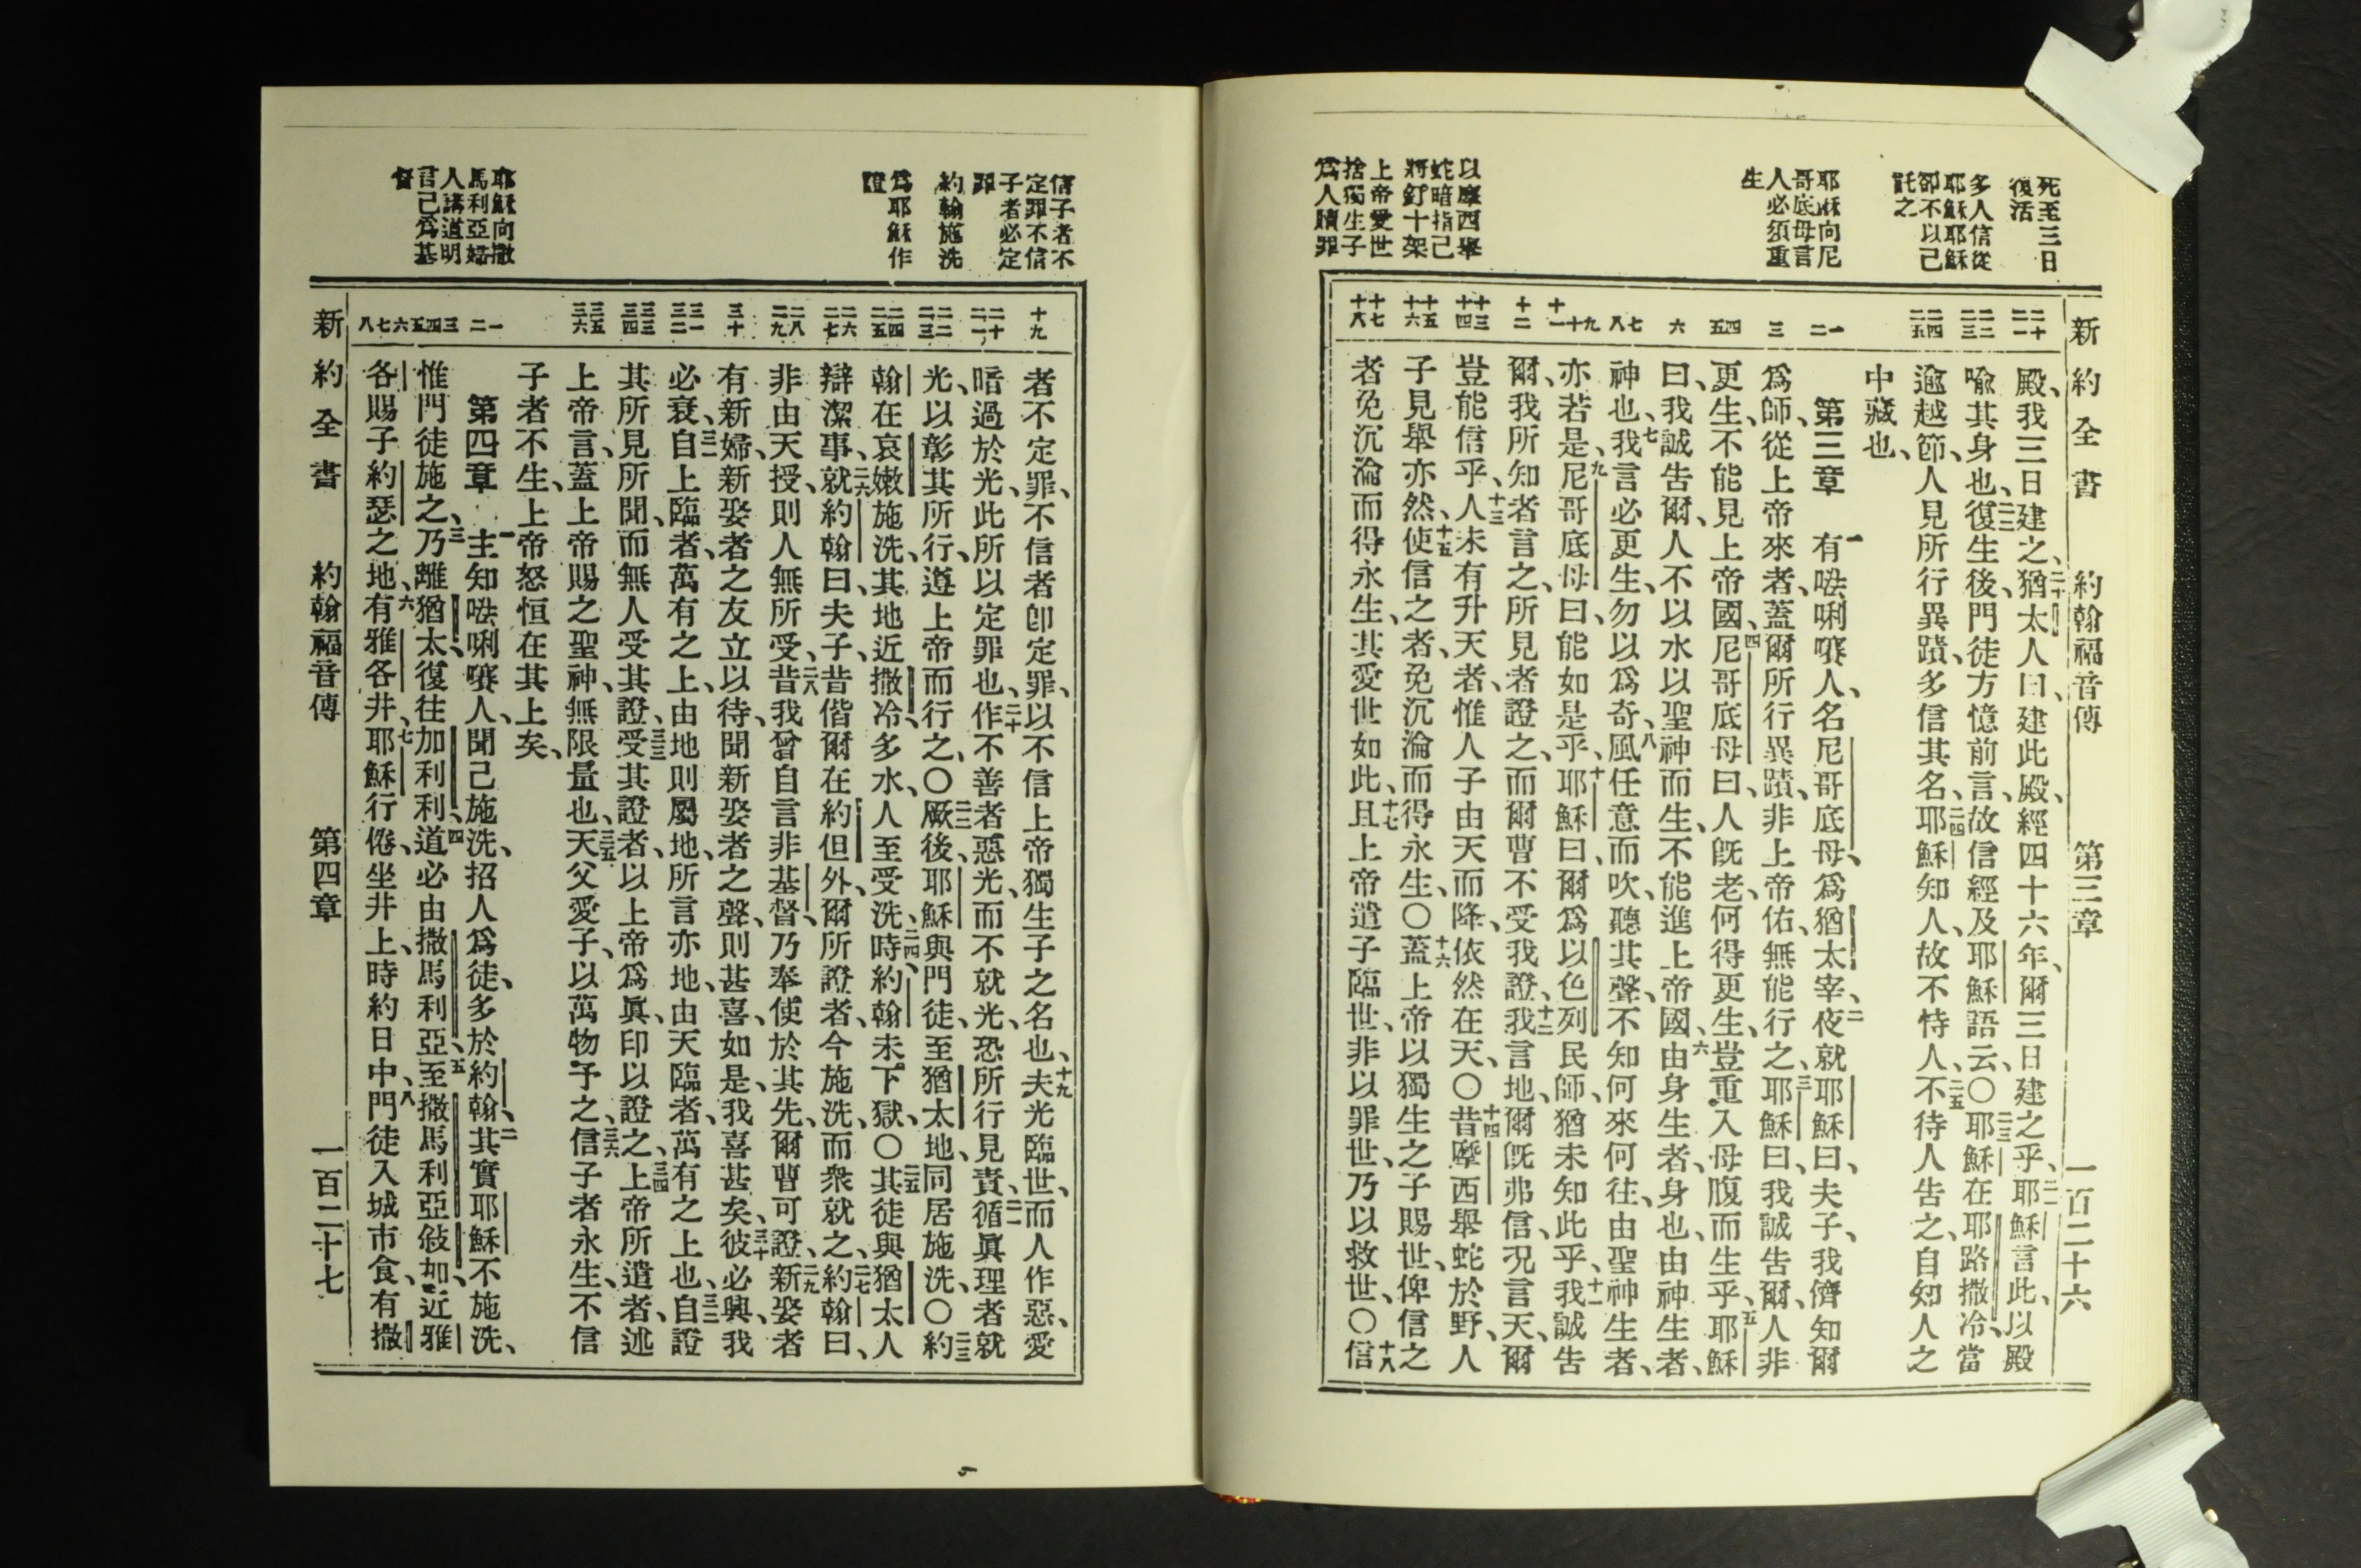 死至三日
復活
多人信從
耶穌耶穌
卻不以己
託之
耶穌向尼
哥底母言
人必須重
生
以摩西舉
蛇暗指己
將釘十架
上帝愛世
捨獨生子
爲人贖罪
新約全書 約翰福音傳 第三章 一百二十六
二十 二一
二二 二三
二四 二五
一 二
三
四 五
六
七 八
九 十 十一
十二
十三 十四
十五 十六
十七 十八
殿、我三日建之、二十猶太人曰、建此殿、經四十六年、爾三日建之乎、二一耶穌言此、以殿
喩其身也、二二復生後、門徒方憶前言、故信經及耶穌語云、〇二三耶穌在耶路撒冷、當
逾越節、人見所行異蹟、多信其名、二四耶穌知人、故不恃人、二五不待人告之、自知人之
中藏也、
第三章 一有㗔唎㘔人、名尼哥底母、爲猶太宰、二夜就耶穌曰、夫子、我儕知爾
爲師、從上帝來者、蓋爾所行異蹟、非上帝佑、無能行之、三耶穌曰、我誠告爾、人非
更生、不能見上帝國、四尼哥底母曰、人旣老、何得更生、豈重入母腹而生乎、五耶穌
曰、我誠告爾、人不以水以聖神而生、不能進上帝國、六由身生者、身也、由神生者、
神也、七我言必更生、勿以爲奇、八風任意而吹、聽其聲、不知何來何往、由聖神生者、
亦若是、九尼哥底母曰、能如是乎、十耶穌曰、爾爲以色列民師、猶未知此乎、十一我誠告
爾、我所知者言之、所見者證之、而爾曹不受我證、十二我言地、爾旣弗信、况言天、爾
豈能信乎、十三人未有升天者、惟人子由天而降、依然在天、〇十四昔摩西舉蛇於野、人
子見舉亦然、十五使信之者、免沉淪而得永生、〇十六蓋上帝以獨生之子賜世、俾信之
者免沉淪而得永生、其愛世如此、十七且上帝遣子臨世、非以罪世、乃以救世、〇十八信
信子者不
定罪不信
子者必定
罪
約翰施洗
爲耶穌作
證
耶穌向撒
馬利亞婦
人講道明
言己爲基
督
十九
二十 二一
二二 二三
二四 二五
二六 二七
二八 二九
三十
三一 三二
三三 三四
三五 三六
一 二
三 四 五
六 七 八
者不定罪、不信者卽定罪、以不信上帝獨生子之名也、十九夫光臨世、而人作惡、愛
暗過於光、此所以定罪也、二十作不善者惡光、而不就光、恐所行見責、二一循眞理者就
光、以彰其所行、遵上帝而行之、〇二二厥後、耶穌與門徒、至猶太地、同居施洗、〇二三約
翰在哀嫩施洗、其地近撒冷、多水、人至受洗、二四時約翰未下獄、〇二五其徒與猶太人
辯潔事、二六就約翰曰、夫子、昔偕爾在約但外、爾所證者、今施洗、而衆就之、二七約翰曰、
非由天授、則人無所受、二八昔我曾自言非基督、乃奉使於其先、爾曹可證、二九新娶者
有新婦、新娶者之友立以待、聞新娶者之聲、則甚喜、如是、我喜甚矣、三十彼必興、我
必衰、三一自上臨者、萬有之上、由地則屬地、所言亦地、由天臨者、萬有之上也、三二自證
其所見所聞、而無人受其證、三三受其證者、以上帝爲眞、印以證之、三四上帝所遣者、述
上帝言、蓋上帝賜之聖神、無限量也、三五天父愛子、以萬物予之、三六信子者永生、不信
子者不生、上帝怒恒在其上矣、
第四章 一主知㗔唎㘔人、聞己施洗、招人爲徒、多於約翰、二其實耶穌不施洗、
惟門徒施之、三乃離猶太、復往加利利、四道必由撒馬利亞、五至撒馬利亞敘加、近雅
各賜子約瑟之地、六有雅各井、七耶穌行倦、坐井上、時約日中、八門徒入城市食、有撒
新約全書 約翰福音傳 第四章 一百二十七